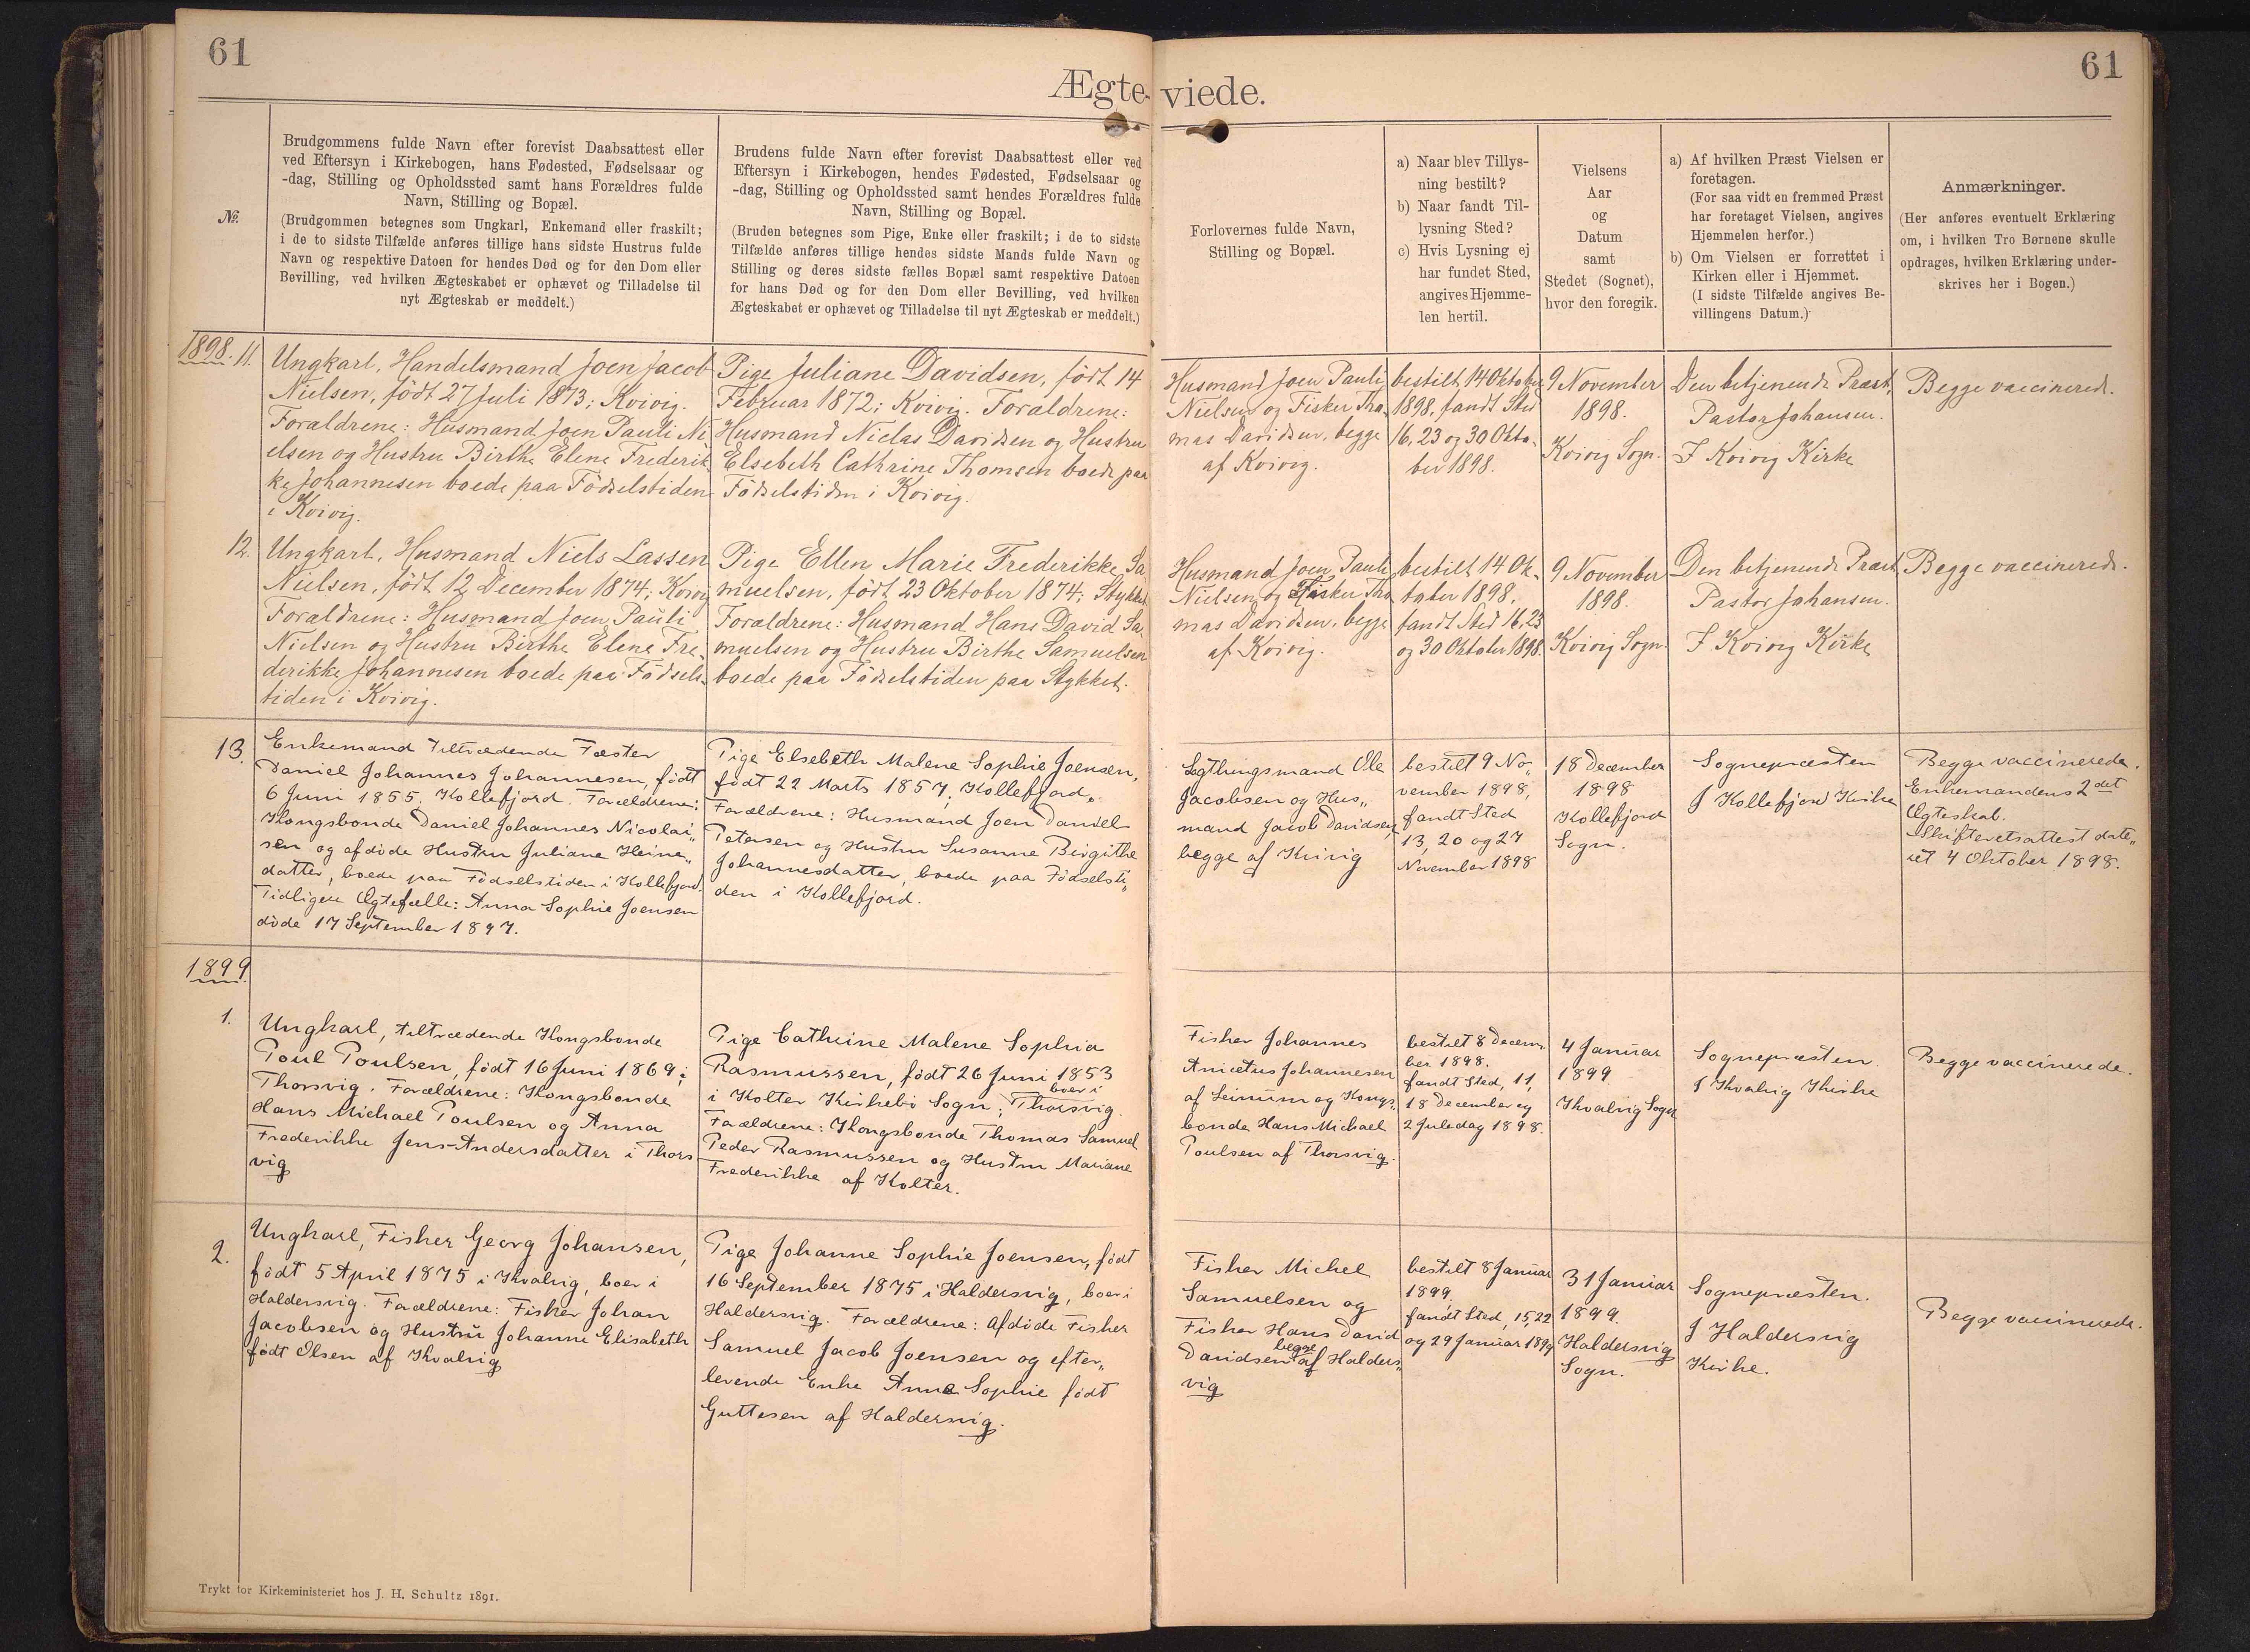 61
61
Ægte-
viede.
№.
Brudgommens fulde Navn efter forevist Daabsattest eller
ved Eftersyn i Kirkebogen, hans Fødested, Fødselsaar og
-dag, Stilling og Opholdssted samt hans Forældres fulde
Navn, Stilling og Bopæl.
(Brudgommen betegnes som Ungkarl, Enkemand eller fraskilt;
i de to sidste Tilfælde anføres tillige hans sidste Hustrus fulde
Navn og respektive Datoen for hendes Død og for den Dom eller
Bevilling, ved hvilken Ægteskabet er ophævet og Tilladelse til
nyt Ægteskab er meddelt.)
Brudens fulde Navn efter forevist Daabsattest eller ved
Eftersyn i Kirkebogen, hendes Fødested, Fødselsaar og
-dag, Stilling og Opholdssted samt hendes Forældres fulde
Navn, Stilling og Bopæl.
(Bruden betegnes som Pige, Enke eller fraskilt; i de to sidste
Tilfælde anføres tillige hendes sidste Mands fulde Navn og
Stilling og deres sidste fælles Bopæl samt respektive Datoen
for hans Død og for den Dom eller Bevilling, ved hvilken
Ægteskabet er ophævet og Tilladelse til nyt Ægteskab er meddelt.)
Forlovernes fulde Navn,
Stilling og Bopæl.
a) Naar blev Tillys-
ning bestilt?
b) Naar fandt Til-
lysning Sted?
c) Hvis Lysning ej
har fundet Sted,
angives Hjemme-
len hertil.
Vielsens
Aar
og
Datum
samt
Stedet (Sognet),
hvor den foregik.
a) Af hvilken Præst Vielsen er
foretagen.
(For saa vidt en fremmed Præst
har foretaget Vielsen, angives
Hjemmelen herfor.)
b) Om Vielsen er forrettet i
Kirken eller i Hjemmet.
(I sidste Tilfælde angives Be-
villingens Datum.)
Anmærkninger.
(Her anføres eventuelt Erklæring
om, i hvilken Tro Børnene skulle
opdrages, hvilken Erklæring under-
skrives her i Bogen.)
1898. 11.
Ungkarl, Handelsmand Joen Jacob
Nielsen, født 27 Juli 1873; Kvivig.
Forældrene: Husmand Joen Pauli Ni
elsen og Hustru Birthe Elene Frederik
ke Johannesen boede paa Fødselstiden
i Kvivig.
Pige Juliane Davidsen, født 14
Februar 1872; Kvivig. Forældrene:
Husmand Niclas Davidsen og Hustru
Elsebeth Cathrine Thomsen boede paa
Fødselstiden i Kvivig.
Husmand Joen Pauli
Nielsen og Fisker Tho
mas Davidsen, begge
af Kvivig.
bestilt 14 Oktober
1898, fandt Sted
16, 23 og 30 Okto-
ber 1898.
9 November
1898.
Kvivig Sogn.
Den betjenende Præst,
Pastor Johansen.
I Kvivig Kirke
Begge vaccinerede.
12.
Ungkarl, Husmand Niels Lassen
Nielsen, født 12 December 1874; Kvivig
Forældrene: Husmand Joen Pauli
Nielsen og Hustru Birthe Elene Fre-
derikke Johannesen boede paa Fødsels-
tiden i Kvivig.
Pige Ellen Marie Frederikke Sa-
muelsen, født 23 Oktober 1874; Stykket
Forældrene: Husmand Hans David Sa-
muelsen og Hustru Birthe Samuelsen
boede paa Fødselstiden paa Stykket.
Husmand Joen Pauli
Nielsen og Fisker Tho
mas Davidsen, begge
af Kvivig.
bestilt 14 Ok-
tober 1898.
fandt Sted 16, 23
og 30 Oktober 1898.
9 November
1898.
Kvivig Sogn.
Den betjenende Præst
Pastor Johansen.
I Kvivig Kirke
Begge vaccinerede.
13.
Enkemand tiltrædende Fæster
Daniel Johannes Johannesen, født
6 Juni 1855. Kollefjord. Forældrene:
Kongsbonde Daniel Johannes Nicolai„
sen og afdøde Hustru Juliane Heine„
datter, boede paa Fødselstiden i Kollefjord.
Tidligere Ægtefælle: Anna Sophie Joensen
døde 17 September 1897.
Pige Elsebeth Malene Sophie Joensen,
født 22 Marts 1857; Kollefjord.
Forældrene: Husmand Joen Daniel
Petersen og Hustru Susanne Birgithe
Johannesdatter, boede paa Fødselsti„
den i Kollefjord.
Lagthingsmand Ole
Jacobsen og Hus„
mand Jacob Davidsen,
begge af Kvivig
bestilt 9 No„
vember 1898,
fandt Sted
13, 20 og 27
November 1898
18 December
1898
Kollefjord
Sogn.
Sognepræsten
I Kollefjord Kirke
Begge vaccinerede.
Enkemandens 2det
Ægteskab.
Skifteretsattest date„
ret 4 Oktober 1898.
1899
1.
Ungkarl, tiltrædende Kongsbonde
Poul Poulsen, født 16 Juni 1869;
Thorsvig. Forældrene: Kongsbonde
Hans Michael Poulsen og Anna
Frederikke Jens-Andersdatter i Thors
vig
Pige Cathrine Malene Sophia
Rasmussen, født 26 Juni 1853
i Kolter Kirkebø Sogn; boer i Thorsvig.
Forældrene: Kongsbonde Thomas Samuel
Peder Rasmussen og Hustru Mariane
Frederikke af Kolter.
Fisker Johannes
Anicetus Johannesen
af Leinum og Kongs„
bonde Hans Michael
Poulsen af Thorsvig.
bestilt 8 Decem„
ber 1898.
fandt Sted, 11,
18 December og
2 Juledag 1898.
4 Januar
1899.
Kvalvig Sogn
Sognepræsten.
I Kvalvig Kirke
Begge vaccinerede.
2.
Ungkarl, Fisker Georg Johansen,
født 5 April 1875 i Kvalvig, boer i
Haldersvig. Forældrene: Fisker Johan
Jacobsen og Hustru Johanne Elisabeth
født Olsen af Kvalvig
Pige Johanne Sophie Joensen, født
16 September 1875 i Haldersvig, boer i
Haldersvig. Forældrene: Afdøde Fisker
Samuel Jacob Joensen og efter„
levende Enke Anne Sophie født
Guttesen af Haldersvig.
Fisker Michel
Samuelsen og
Fisker Hans David
Davidsen begge af Halders„
vig
bestilt 8 Januar
1899.
fandt Sted, 15, 22
og 29 Januar 1899
31 Januar
1899.
Haldersvig
Sogn.
Sognepræsten.
I Haldersvig
Kirke.
Begge vaccinerede.
Trykt for Kirkeministeriet hos J. H. Schultz 1891.